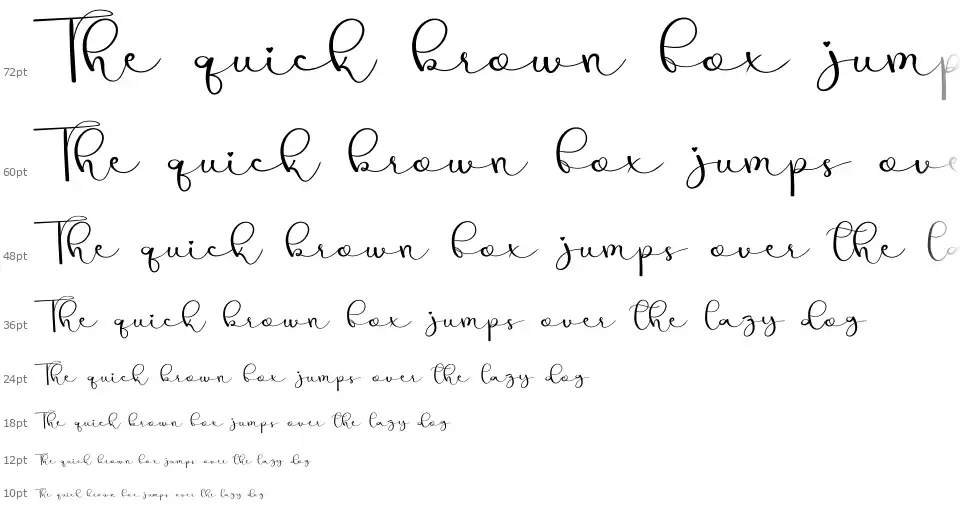 72pt The quick brown fox jump
60pt The quick brown fox jumps ove
48pt The quick brown fox jumps over the la
36pt The quick brown fox jumps over the lazy dog
24pt The quick brown fox jumps over the lazy dog
18pt The quick brown fox jumps over the lazy dog
12pt The quick brown fox jumps over the lazy dog
10pt The quick brown fox jumps over the lazy dog